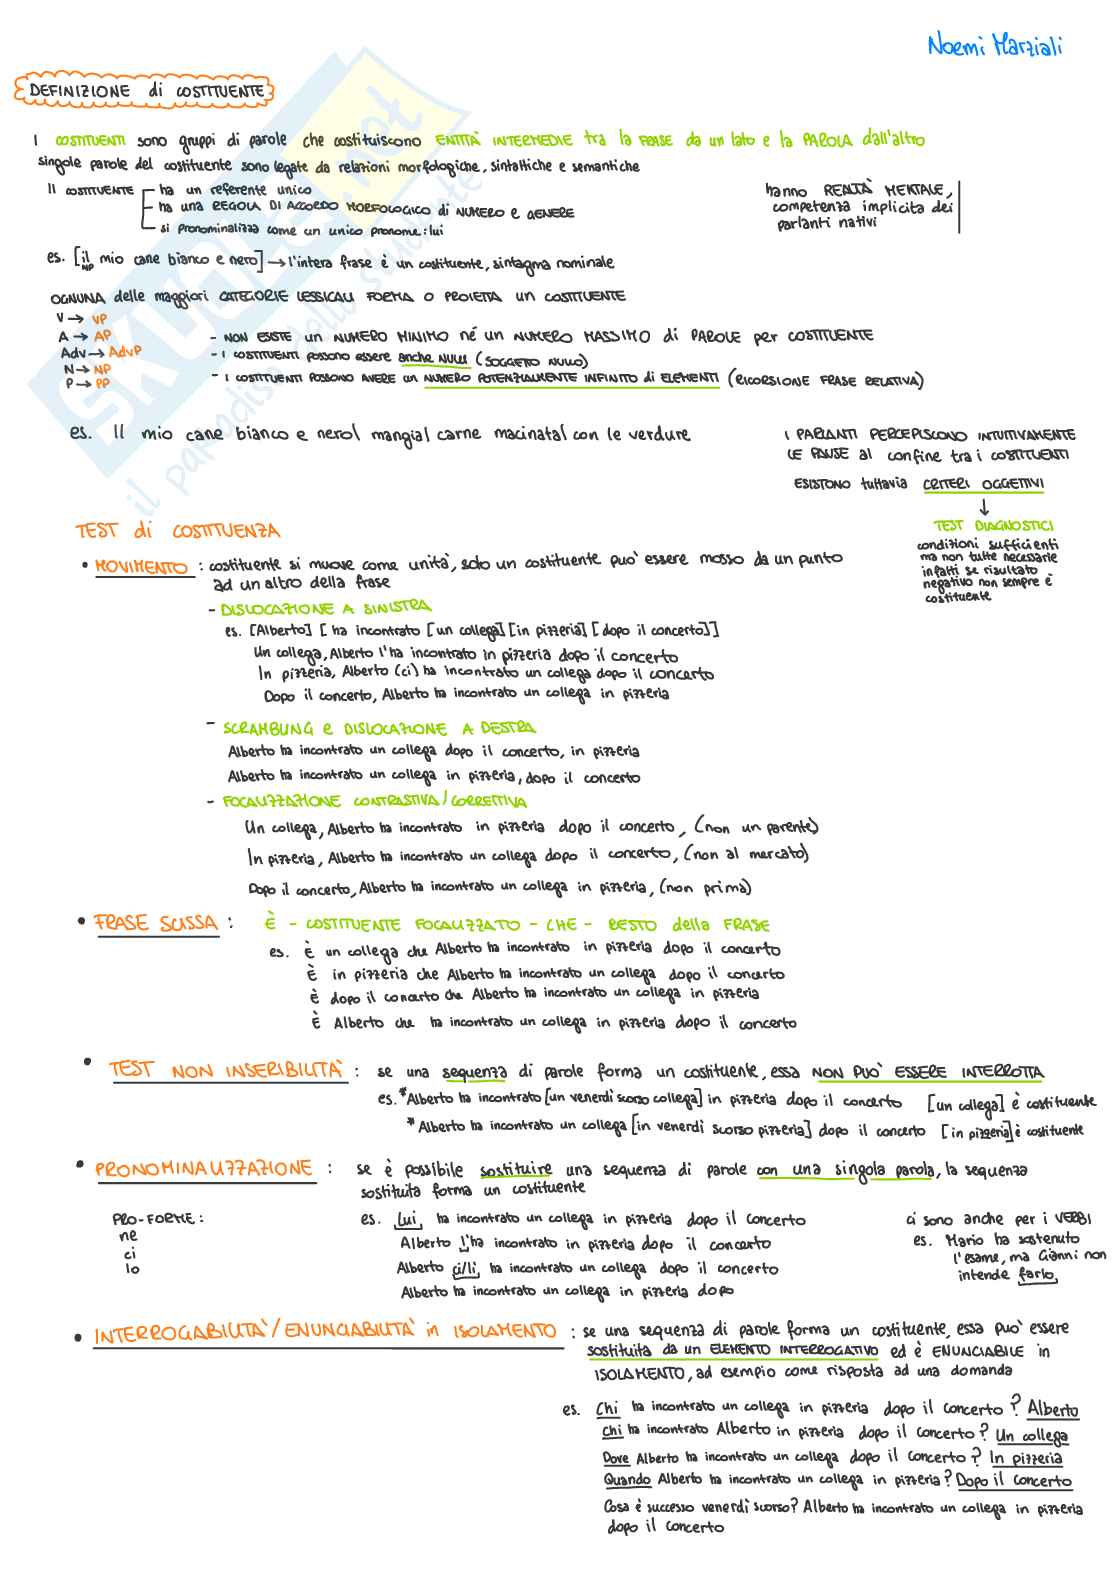 Noemi Marziali
DEFINIZIONE di COSTITUENTE
I COSTITUENTI sono gruppi di parole che costituiscono ENTITÀ INTERMEDIE tra la FRASE da un lato e la PAROLA dall'altro
singole parole del costituente sono legate da relazioni morfologiche, sintattiche e semantiche
Il COSTITUENTE
ha un referente unico
ha una REGOLA DI ACCORDO MORFOLOGICO di NUMERO e GENERE
si pronominalizza come un unico pronome: lui
hanno REALTÀ MENTALE,
competenza implicita dei
parlanti nativi
es. [il mio cane bianco e nero] → l'intera frase è un costituente, sintagma nominale
NP
OGNUNA delle maggiori CATEGORIE LESSICALI FORMA O PROIETTA UN COSTITUENTE
V → VP
A → AP
Adv → AdvP
N → NP
P → PP
- NON ESISTE un NUMERO MINIMO né un NUMERO MASSIMO di PAROLE per COSTITUENTE
- I COSTITUENTI POSSONO ESSERE anche NULLI (SOGGETTO NULLO)
- I COSTITUENTI POSSONO AVERE un NUMERO POTENZIALMENTE INFINITO di ELEMENTI (RICORSIONE FRASE RELATIVA)
es. Il mio cane bianco e nero| mangia| carne macinata| con le verdure
I PARLANTI PERCEPISCONO INTUITIVAMENTE
LE PAUSE al confine tra i COSTITUENTI
ESISTONO tuttavia CRITERI OGGETTIVI
↓
TEST DIAGNOSTICI
condizioni sufficienti
ma non tutte necessarie
infatti se risultato
negativo non sempre è
costituente
TEST di COSTITUENZA
• MOVIMENTO : costituente si muove come unità, solo un costituente può essere mosso da un punto
ad un altro della frase
- DISLOCAZIONE A SINISTRA
es. [Alberto] [ ha incontrato [un collega] [in pizzeria] [ dopo il concerto]]
Un collega, Alberto l'ha incontrato in pizzeria dopo il concerto
In pizzeria, Alberto (ci) ha incontrato un collega dopo il concerto
Dopo il concerto, Alberto ha incontrato un collega in pizzeria
- SCRAMBLING e DISLOCAZIONE A DESTRA
Alberto ha incontrato un collega dopo il concerto, in pizzeria
Alberto ha incontrato un collega in pizzeria, dopo il concerto
- FOCALIZZAZIONE CONTRASTIVA/CORRETTIVA
Un collega, Alberto ha incontrato in pizzeria dopo il concerto, (non un parente)
In pizzeria, Alberto ha incontrato un collega dopo il concerto, (non al mercato)
Dopo il concerto, Alberto ha incontrato un collega in pizzeria, (non prima)
• FRASE SCISSA : È - COSTITUENTE FOCALIZZATO - CHE - RESTO della FRASE
es. È un collega che Alberto ha incontrato in pizzeria dopo il concerto
È in pizzeria che Alberto ha incontrato un collega dopo il concerto
È dopo il concerto che Alberto ha incontrato un collega in pizzeria
È Alberto che ha incontrato un collega in pizzeria dopo il concerto
• TEST NON INSERIBILITÀ : se una sequenza di parole forma un costituente, essa NON PUÒ ESSERE INTERROTTA
es. *Alberto ha incontrato [un venerdì scorso collega] in pizzeria dopo il concerto [un collega] è costituente
*Alberto ha incontrato un collega [in venerdì scorso pizzeria] dopo il concerto [in pizzeria] è costituente
• PRONOMINALIZZAZIONE : se è possibile sostituire una sequenza di parole con una singola parola, la sequenza
sostituita forma un costituente
PRO-FORME :
ne
ci
lo
es. Lui ha incontrato un collega in pizzeria dopo il concerto
Alberto l'ha incontrato in pizzeria dopo il concerto
Alberto ci/lì ha incontrato un collega dopo il concerto
Alberto ha incontrato un collega in pizzeria dopo
ci sono anche per i VERBI
es. Mario ha sostenuto
l'esame, ma Gianni non
intende farlo
• INTERROGABILITÀ/ENUNCIABILITÀ in ISOLAMENTO : se una sequenza di parole forma un costituente, essa può essere
sostituita da un ELEMENTO INTERROGATIVO ed è ENUNCIABILE in
ISOLAMENTO, ad esempio come risposta ad una domanda
es. Chi ha incontrato un collega in pizzeria dopo il concerto? Alberto
Chi ha incontrato Alberto in pizzeria dopo il concerto? Un collega
Dove Alberto ha incontrato un collega dopo il concerto? In pizzeria
Quando Alberto ha incontrato un collega in pizzeria? Dopo il concerto
Cosa è successo venerdì scorso? Alberto ha incontrato un collega in pizzeria
dopo il concerto
SKUOLA.net
il paradiso dello studente